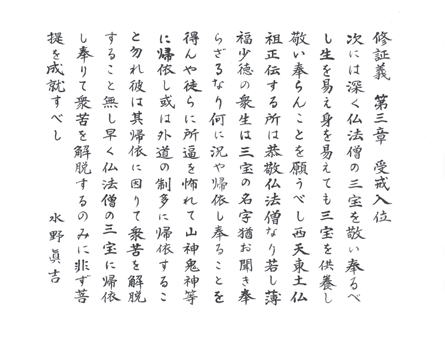 修証義　第三章　受戒入位
次には深く仏法僧の三宝を敬い奉るべ
し生を易え身を易えても三宝を供養し
敬い奉らんことを願うべし西天東土仏
祖正伝する所は恭敬仏法僧なり若し薄
福少徳の衆生は三宝の名字猶お聞き奉
らざるなり何に況や帰依し奉ることを
得んや徒らに所逼を怖れて山神鬼神等
に帰依し或は外道の制多に帰依するこ
と勿れ彼は其帰依に因りて衆苦を解脱
すること無し早く仏法僧の三宝に帰依
し奉りて衆苦を解脱するのみに非ず菩
提を成就すべし
水野眞吉